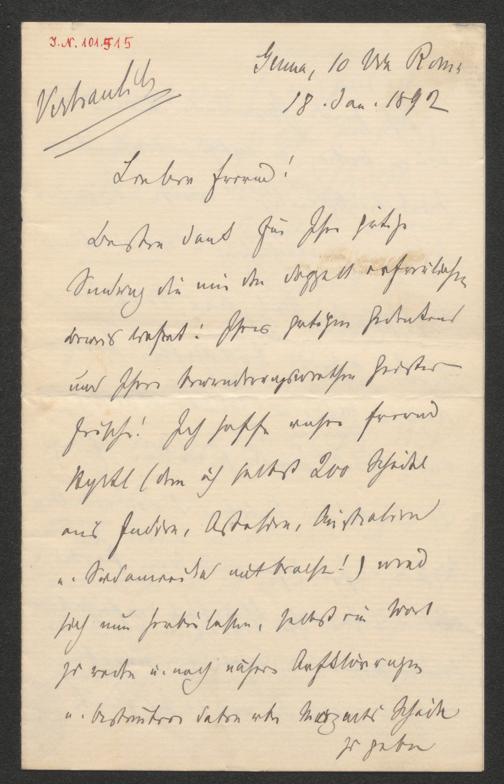 J.N. 101.515
Genua, 10 Via Roma
18. Jan. 1892
Vertraulich
Lieber Freund!
Besten Dank für Ihre gütige
Sendung die mir den doppelt erfreulichen
Beweis liefert: Ihres gütigen Gedenkens
und Ihrer bewunderungswerthen Geistes
frische! Ich hoffe unser Freund
Hyrtl (dem ich selbst 200 Schädel
aus Indien, Australien
u. Südamerika mitbrachte!) wird
sich nun herbeilassen, selbst ein Wort
zu reden u. noch nähere Aufklärungen
u. bestimtere Daten über Mozarts Schädel
zu geben